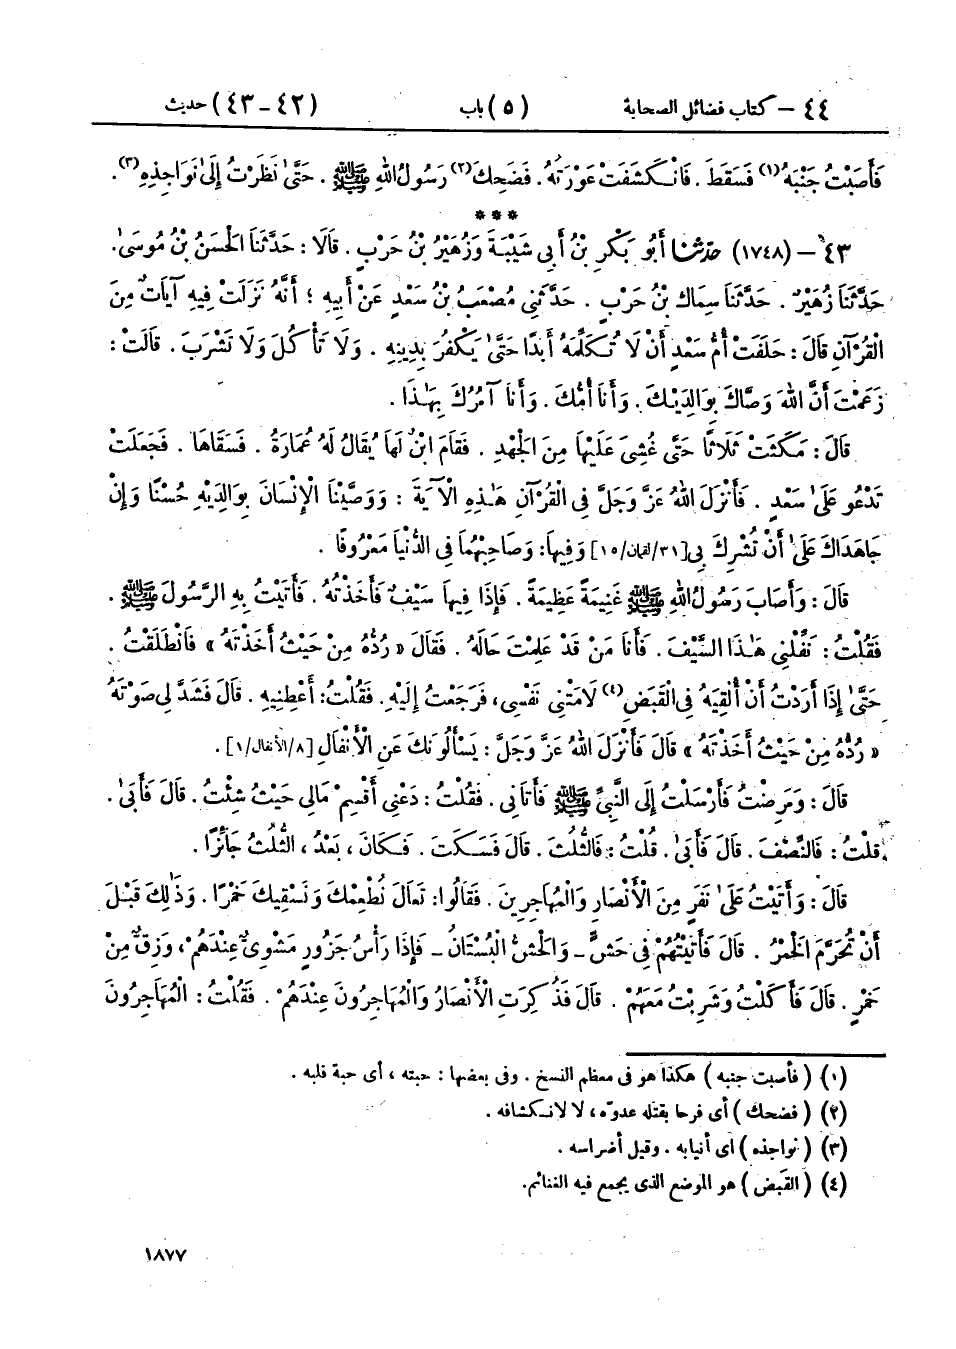 ٤٤ – كتاب فضائل الصحابة (٥) باب (٤٢ – ٤٣) حديث
فَأَصَبْتُ جَنْبَهُ (١) فَسَقَطَ . فَانْكَشَفَتْ عَوْرَتُهُ . فَضَحِكَ (٢) رَسُولُ اللهِ ﷺ . حَتَّىٰ نَظَرْتُ إِلَىٰ نَوَاجِذِهِ (٣) .
* * *
٤٣ – (١٧٤٨) حدّثنا أَبُو بَكْرِ بْنُ أَبِي شَيْبَةَ وَزُهَيْرُ بْنُ حَرْبٍ . قَالَا : حَدَّثَنَا الْحَسَنُ بْنُ مُوسَىٰ .
حَدَّثَنَا زُهَيْرٌ . حَدَّثَنَا سِمَاكُ بْنُ حَرْبٍ . حَدَّثَنِي مُصْعَبُ بْنُ سَعْدٍ عَنْ أَبِيهِ ؛ أَنَّهُ نَزَلَتْ فِيهِ آيَاتٌ مِنَ
الْقُرْآنِ قَالَ : حَلَفَتْ أُمُّ سَعْدٍ أَنْ لَا تُكَلِّمَهُ أَبَدًا حَتَّىٰ يَكْفُرَ بِدِينِهِ . وَلَا تَأْكُلَ وَلَا تَشْرَبَ . قَالَتْ :
زَعَمْتَ أَنَّ اللهَ وَصَّاكَ بِوَالِدَيْكَ . وَأَنَا أُمُّكَ . وَأَنَا آمُرُكَ بِهَـٰذَا .
قَالَ : مَكَثَتْ ثَلَاثًا حَتَّى غُشِيَ عَلَيْهَا مِنَ الْجَهْدِ . فَقَامَ ابْنٌ لَهَا يُقَالُ لَهُ عُمَارَةُ . فَسَقَاهَا . فَجَعَلَتْ
تَدْعُو عَلَىٰ سَعْدٍ . فَأَنْزَلَ اللهُ عَزَّ وَجَلَّ فِي الْقُرْآنِ هَـٰذِهِ الْآيَةَ : وَوَصَّيْنَا الْإِنْسَانَ بِوَالِدَيْهِ حُسْنًا وَإِنْ
جَاهَدَاكَ عَلَىٰ أَنْ تُشْرِكَ بِي [٣١/لقمان/١٥] وَفِيهَا : وَصَاحِبْهُمَا فِي الدُّنْيَا مَعْرُوفًا .
قَالَ : وَأَصَابَ رَسُولُ اللهِ ﷺ غَنِيمَةً عَظِيمَةً . فَإِذَا فِيهَا سَيْفٌ فَأَخَذْتُهُ . فَأَتَيْتُ بِهِ الرَّسُولَ ﷺ .
فَقُلْتُ : نَفِّلْنِي هَـٰذَا السَّيْفَ . فَأَنَا مَنْ قَدْ عَلِمْتَ حَالَهُ . فَقَالَ « رُدُّهُ مِنْ حَيْثُ أَخَذْتَهُ » فَانْطَلَقْتُ .
حَتَّىٰ إِذَا أَرَدْتُ أَنْ أُلْقِيَهُ فِي الْقَبَضِ (٤) لَامَتْنِي نَفْسِي ، فَرَجَعْتُ إِلَيْهِ . فَقُلْتُ : أَعْطِنِيهِ . قَالَ فَشَدَّ لِي صَوْتَهُ
« رُدُّهُ مِنْ حَيْثُ أَخَذْتَهُ » قَالَ فَأَنْزَلَ اللهُ عَزَّ وَجَلَّ : يَسْأَلُونَكَ عَنِ الْأَنْفَالِ [٨/الأنفال/١] .
قَالَ : وَمَرِضْتُ فَأَرْسَلْتُ إِلَى النَّبِيِّ ﷺ فَأَتَانِي . فَقُلْتُ : دَعْنِي أَقْسِمْ مَالِي حَيْثُ شِئْتُ . قَالَ فَأَبَىٰ .
قُلْتُ : فَالنِّصْفَ . قَالَ فَأَبَىٰ . قُلْتُ : فَالثُّلُثَ . قَالَ فَسَكَتَ . فَكَانَ ، بَعْدُ ، الثُّلُثُ جَائِزًا .
قَالَ : وَأَتَيْتُ عَلَىٰ نَفَرٍ مِنَ الْأَنْصَارِ وَالْمُهَاجِرِينَ . فَقَالُوا : تَعَالَ نُطْعِمْكَ وَنَسْقِيكَ خَمْرًا . وَذَٰلِكَ قَبْلَ
أَنْ تُحَرَّمَ الْخَمْرُ . قَالَ فَأَتَيْتُهُمْ فِي حَشٍّ – وَالْحَشُّ الْبُسْتَانُ – فَإِذَا رَأْسُ جَزُورٍ مَشْوِيٌّ عِنْدَهُمْ ، وَزِقٌّ مِنْ
خَمْرٍ . قَالَ فَأَكَلْتُ وَشَرِبْتُ مَعَهُمْ . قَالَ فَذُكِرَتِ الْأَنْصَارُ وَالْمُهَاجِرُونَ عِنْدَهُمْ . فَقُلْتُ : الْمُهَاجِرُونَ
(١) ( فأصبت جنبه ) هكذا هو فى معظم النسخ . وفى بعضها : حبته ، أى حبة قلبه .
(٢) ( فضحك ) أى فرحا بقتله عدوّه ، لا لانكشافه .
(٣) ( نواجذه ) أى أنيابه . وقيل أضراسه .
(٤) ( القَبَض ) هو الموضع الذى يجمع فيه الغنائم .
١٨٧٧